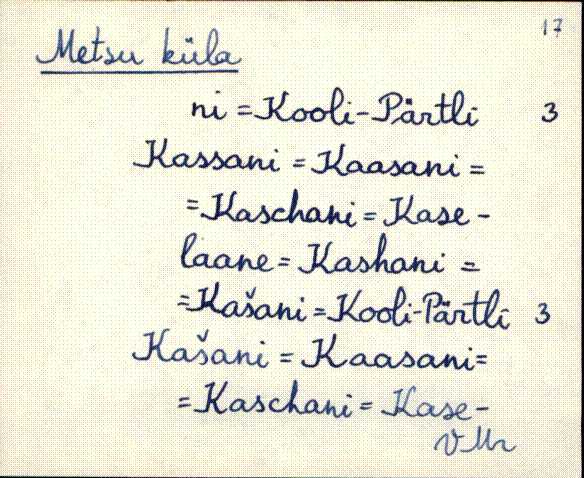 17
Metsu küla
ni = Kooli-Pärtli 3
Kassani = Kaasani =
= Kaschani = Kase-
laane = Kashani =
= Kašani = Kooli-Pärtli 3
Kašani = Kaasani =
= Kaschani = Kase-